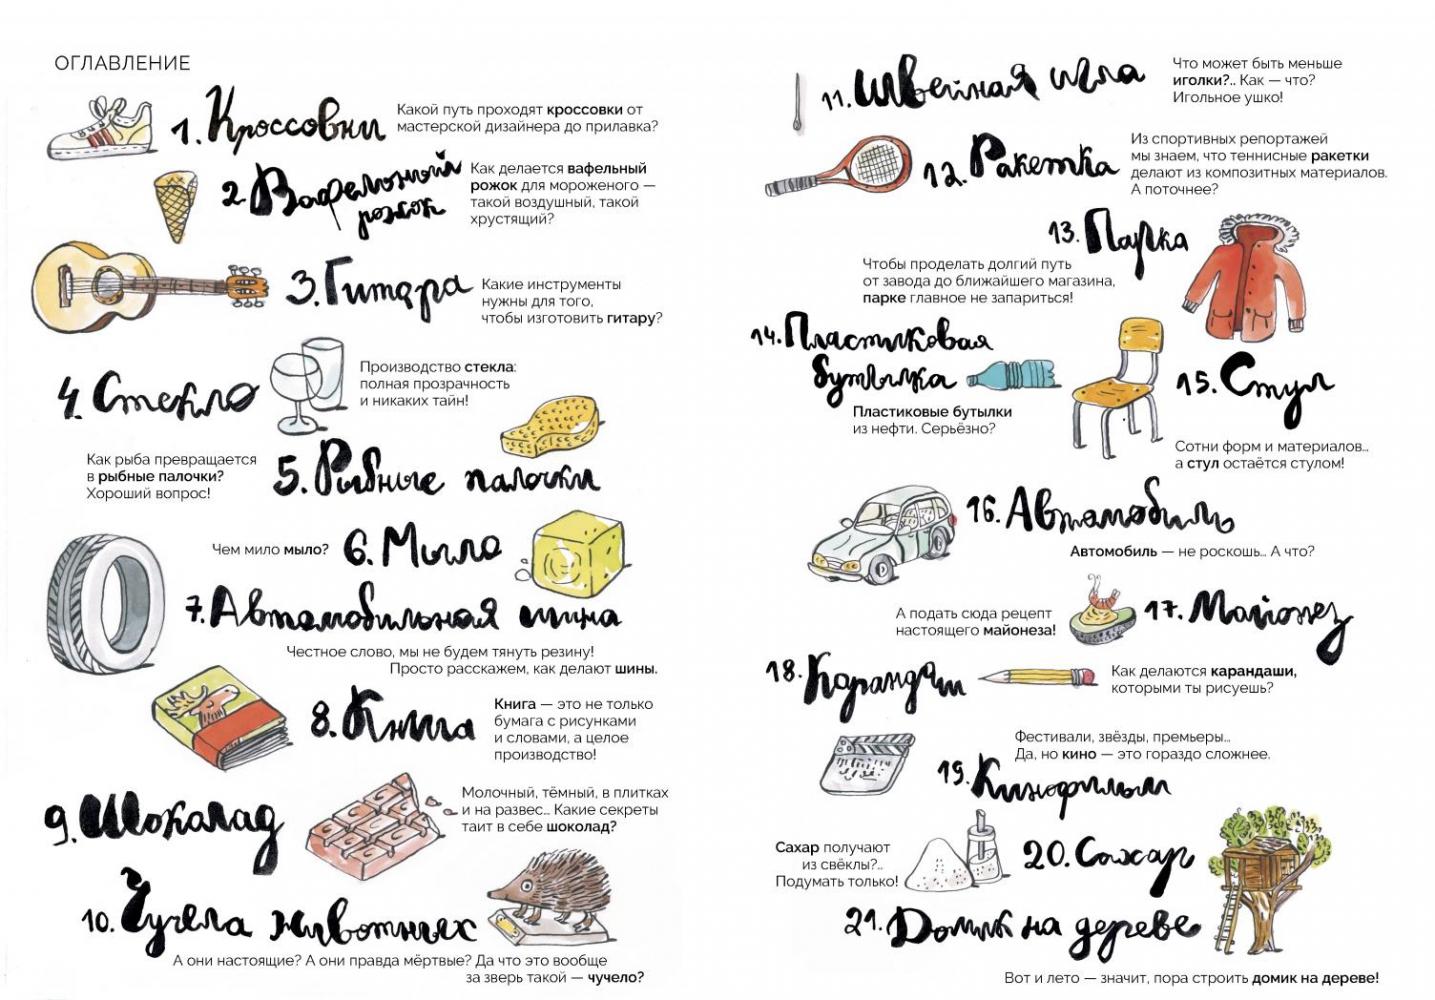 ОГЛАВЛЕНИЕ
1. Кроссовки
Какой путь проходят кроссовки от
мастерской дизайнера до прилавка?
2. Вафельный
рожок
Как делается вафельный
рожок для мороженого —
такой воздушный, такой
хрустящий?
3. Гитара
Какие инструменты
нужны для того,
чтобы изготовить гитару?
4. Стекло
Производство стекла:
полная прозрачность
и никаких тайн!
Как рыба превращается
в рыбные палочки?
Хороший вопрос!
5. Рыбные палочки
Чем мило мыло?
6. Мыло
7. Автомобильная шина
Честное слово, мы не будем тянуть резину!
Просто расскажем, как делают шины.
8. Книга
Книга — это не только
бумага с рисунками
и словами, а целое
производство!
9. Шоколад
Молочный, тёмный, в плитках
и на развес... Какие секреты
таит в себе шоколад?
10. Чучела животных
А они настоящие? А они правда мёртвые? Да что это вообще
за зверь такой — чучело?
11. Швейная игла
Что может быть меньше
иголки?.. Как — что?
Игольное ушко!
12. Ракетка
Из спортивных репортажей
мы знаем, что теннисные ракетки
делают из композитных материалов.
А поточнее?
13. Парка
Чтобы проделать долгий путь
от завода до ближайшего магазина,
парке главное не запариться!
14. Пластиковая
бутылка
Пластиковые бутылки
из нефти. Серьёзно?
15. Стул
Сотни форм и материалов...
а стул остаётся стулом!
16. Автомобиль
Автомобиль — не роскошь... А что?
А подать сюда рецепт
настоящего майонеза!
17. Майонез
18. Карандаш
Как делаются карандаши,
которыми ты рисуешь?
Фестивали, звёзды, премьеры...
Да, но кино — это гораздо сложнее.
19. Кинофильм
Сахар получают
из свёклы?..
Подумать только!
20. Сахар
21. Домик на дереве
Вот и лето — значит, пора строить домик на дереве!